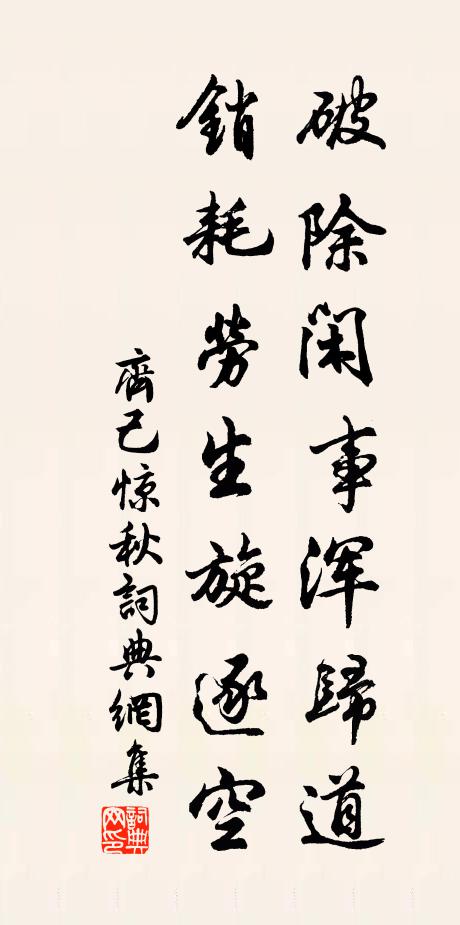 破除閑事渾歸道
銷耗勞生旋逐空
齊己惊秋詞典網集
詞典网印